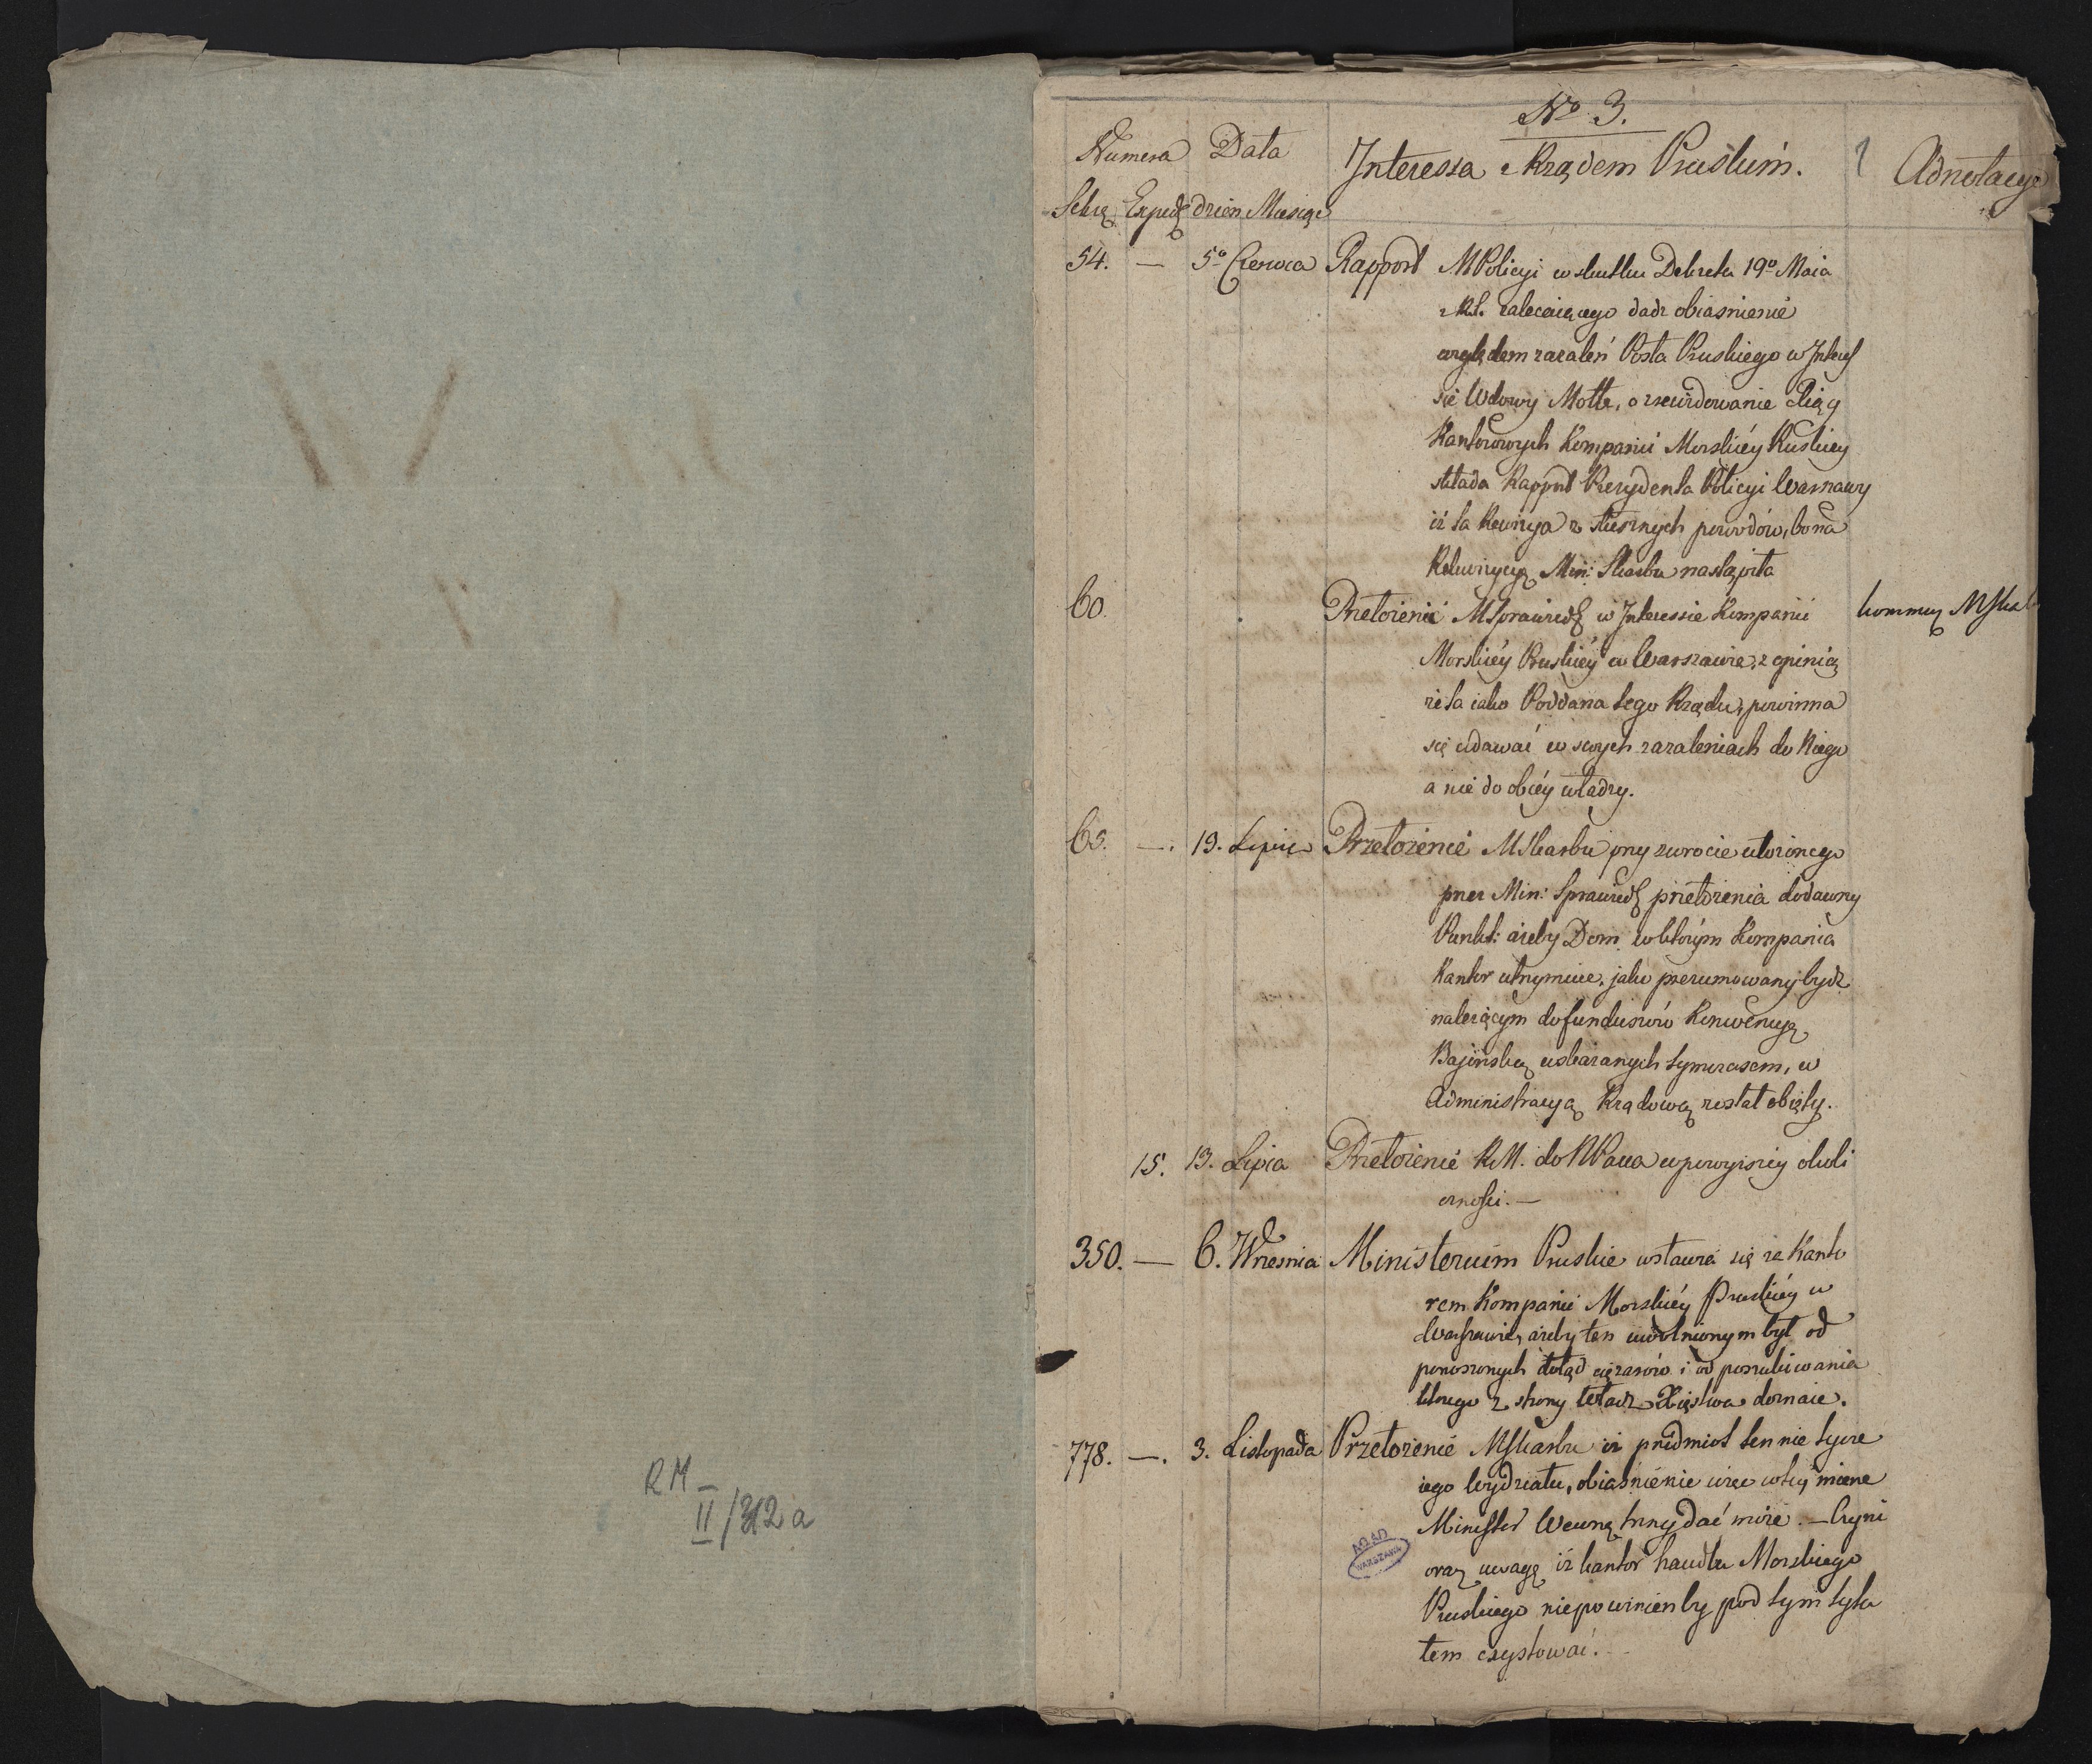 RM
II/312 a
No 3.
Numera Data Interessa z Rządem Pruskim. 1 Adnotacye
Sekrę Exped dzień Miesiąc
54. — 5o Czerwca Rapport MPolicyi w skutku Dekretu 19o Maia
zalecaiącego dadz obiasnienie
względem zazaleń Posła Pruskiego w Interes
sie Wdowy Motte, o zrewidowanie Xiąg
Kantorowych Kompanii Morskiéy Pruskiey
składa Rapport Prezydenta Policyi Warszawy
iż ta Rewizya z słusznych powodów, bo na
Rekwizycyą Min: Skarbu nastąpiła
60. Przełożenie MSprawiedl w Interessie Kompanii kommu MSka
Morskiéy Pruskiéy w Warszawie, z opinią
że ta iako Poddana tego Rządu, powinna
się udawać w swych zazaleniach do Niego
a nie do obcéy władzy.
65. —. 19. Lipca Przełożenie MSkarbu przy zwrocie ułożonego
przez Min: Sprawiedl przełożenia dodawny
Punkt: ażeby Dom w którym Kompania
Kantor utrzymuie, jako prezumowany bydz
należącym do funduszów Konwencyą
Bajońską wskazanych tymczasem, w
Administracyą Rządową został obięty.
15. 13. Lipca Przełożenie RM. do NPana w powyższey okoli
cznosci. —
350. — 6. Wrzesnia Ministerium Pruskie wstawia się za Kanto
rem Kompanii Morskiéy Pruskiéy w
Warszawie, ażeby ten uwolnionym był od
ponoszonych dotąd ciężarów i od poszukiwania
którego z strony Władz Xięstwa doznaie.
778. —. 3. Listopada Przełożenie MSkarbu iż przedmiot ten nie tycze
iego Wydziału, obiasnienie więc w tey mierze
Minister Wewnętrzny dać może. — Czyni
oraz uwagę iż kantor handlu Morskiego
Pruskiego niepowinienby pod tym tytu
łem exystować.
AGAD
WARSZAWA